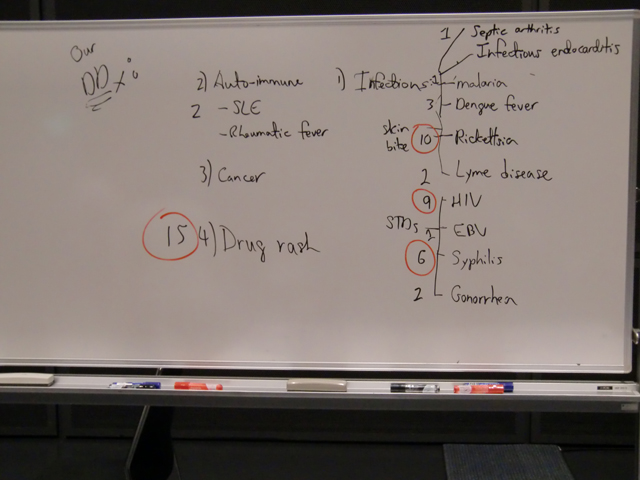 Our
DDx:
2) Auto-immune
2 - SLE
- Rheumatic fever
3) Cancer
15 4) Drug rash
1) Infections
1 Septic arthritis
Infectious endocarditis
1 malaria
3 Dengue fever
skin bite 10 Rickettsia
2 Lyme disease
9 HIV
STDs
EBV
6 Syphilis
2 Gonorrhea